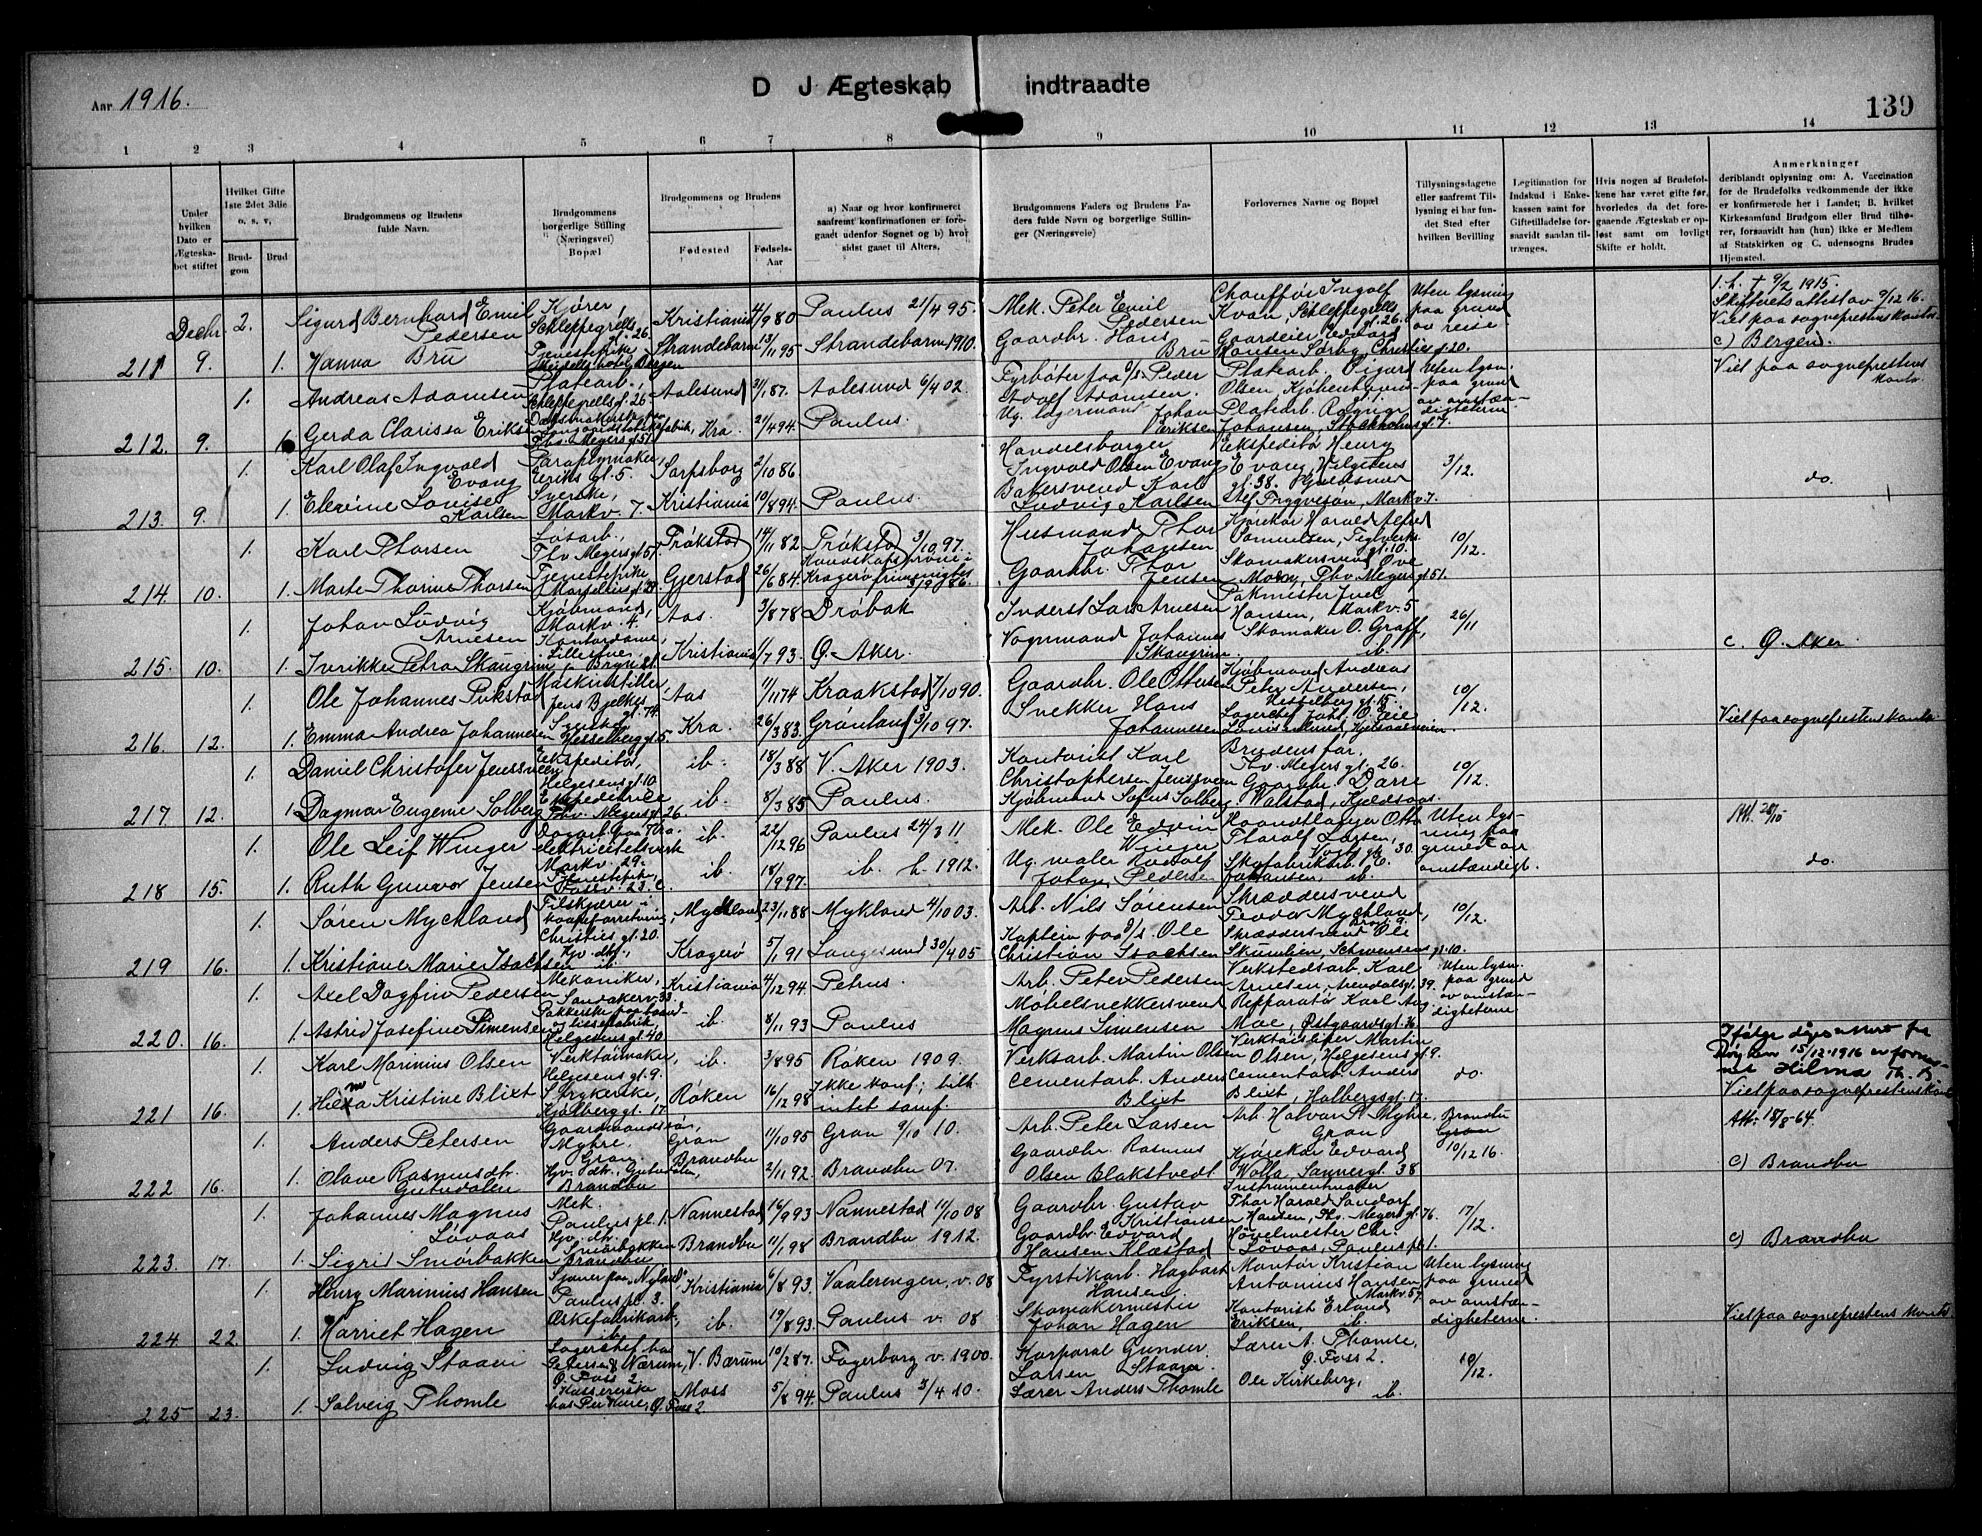 Aar 1916.
D J Ægteskab indtraadte
139
1 2 3 4 5 6 7 8 9 10 11 12 13 14
Under hvilken Dato er Ægteskabet stiftet
Hvilket Gifte 1ste 2det 3die o. s. v,
Brudgom
Brud
Brudgommens og Brudens fulde Navn.
Brudgommens borgerlige Stilling (Næringsvei) Bopæl
Brudgommens og Brudens
Fødested
Fødsels-Aar
a) Naar og hvor konfirmeret saafremt konfirmationen er foregaaet udenfor Sognet og b) hvor sidst gaaet til Alters.
Brudgommens Faders og Brudens Faders fulde Navn og borgerlige Stillinger (Næringsveie)
Forlovernes Navne og Bopæl
Tillysningsdagene eller saafremt Tillysning ei har fundet Sted efter hvilken Bevilling
Legitimation for Indskud i Enkekassen samt for Giftetilladelse forsaavidt saadan tiltrænges.
Hvis nogen af Brudefolkene har været gifte før, hvorledes da det foregaaende Ægteskab er opløst samt om lovligt Skifte er holdt.
Anmerkninger deriblandt oplysning om: A. Vaccination for de Brudefolks vedkommende der ikke er konfirmerede her i Landet; B. hvilket Kirkesamfund Brudgom eller Brud tilhører, forsaavidt han (hun) ikke er Medlem af Statskirken og C. udensogns Brudes Hjemsted.
Decbr. 2. Sigurd Bernhard Emil Pedersen Kjører, Schleppegrells gt. 26 Kristiania 4/9 80 Paulus 21/4 95. Mek. Peter Emil Pedersen Chauffør Ingolf Kvan, Schleppegrells gt. 26. Uten lysning paa grund av reise 1. h. † 9/2 1915. Skifterets attest av 9/12 16. Viet paa sogneprestens kontor
211 9. 1. Hanna Bru Tjenestepike Bergen Strandebarm 13/11 95 Strandebarm 1910. Gaardbr. Hans Bru Gaardeier Edvard Hansen Sørby, Christies gt. 20. c) Bergen.
1. Andreas Adamsen Platearb., Schleppegrells gt. 26 Aalesund 21/1 87. Aalesund 6/4 02 Fyrbøter paa d/s. Peder Adolf Adamsen. Platearb. Sigurd Olsen, Kjøbenhavns gt. 1. Uten lysn. paa grund av omstændigheterne Viet paa sogneprestens kontor
212. 9. 1 Gerda Clarissa Eriksen Ths. Meyers gt. 51 Kra. 21/4 94 Paulus. Ug. Lagermand Johan Eriksen Platearb. Ragnar Johansen, Stockholms gt. 7.
1. Karl Olaf Ingvald Evang Paraplymaker, Eriks gt. 5. Sarpsborg 2/10 86 Handelsborger Ingvald Olsen Evang Ekspeditør Henry Evang, Helgesens gt. 38. 3/12. do.
213. 9. 1 Elevine Lovise Karlsen Syerske, Markv. 7. Kristiania 10/8 94. Paulus. Bakersvend Karl Ludvig Karlsen Alf Tryggveson, Markv. 7.
1. Karl Thorsen Løsarb., Thv. Meyers gt. 51 Trøkstad 14/11 82 Trøkstad 3/10 97. Husmand Thor Johansen Kjørekar Harald Alfred Samuelsen, Teglverks gt. 10. 10/12.
214. 10. 1. Marte Thorine Thorsen Tjenestepike Gjerstad 26/6 84 Kragerø Gaardbr. Thor Jensen Skomakersvend Ove Moen, Thv. Meyers gt. 51.
1. Johan Ludvig Arnesen Kjøbmand, Markv. 4. Aas. 3/8 78 Drøbak Inderst Lars Arnesen Pakmester Juel Hansen, Markv. 5 26/11
215. 10. 1. Inrikke Petra Skaugrim Kontordame, Lilleelven, Bryn st. Kristiania 1/7 93. Ø. Aker. Vognmand Johannes Skaugrim. Skomaker O. Graff, ib. c. Ø. Aker
1. Ole Johannes Pukstad Maskinstiller, Jens Bjelkes gt. 74. Aas 11/11 74 Kraakstad 7/10 90. Gaardbr. Ole Ottersen Kjøbmand Andreas Peter Andersen, Hesselbergs gt. 5. 10/12.
216. 12. 1. Emma Andrea Johannesen Syerske Hesselbergs gt. 5 Kra. 26/3 83. Grønland 3/10 97. Snekker Hans Johannesen Viet paa sogneprestens kontor
1. Daniel Christofer Jenssveen Ekspeditør, Helgesens gt. 10 ib. 18/3 88 V. Aker 1903. Kontorist Karl Christophersen Jenssveen Brudens far, Thv. Meyers gt. 26. 10/12.
217. 12. 1. Dagmar Eugenie Solberg Ekspeditrice Thv. Meyers gt. 26. ib. 8/3 85 Paulus. Kjøbmand Sofus Solberg Gaardbr. Dorre Walstad, Kjeldsaas.
1. Ole Leif Winger Dagarb. paa Kra. elektricitetsverk Markv. 29. ib. 22/12 96 Paulus 24/3 11 Mek. Ole Edvin Winger Haandlanger Otto Tharalf Larsen, Vogts gt. 30. Uten lysning paa grund av omstændigh. Att. 28/10
218 15. 1. Ruth Gunvor Jensen Tjenestepike, Fossv. 23. c. ib. 18/9 97. ib. h. 1912. Ug. maler Rudolf Johan Pedersen Skofabrikarb. Johansen, ib. do.
1. Søren Mychland Tilskjærer i Christies gt. 20. Mychland 23/11 88 Mykland 4/10 03. Arb. Nils Sørensen Skræddersvend Teodor Mychland, 10/12.
219 16. 1. Kristiane Marie Isachsen Hjv. dtr., ib. Kragerø 5/1 91 Langesund 30/4 05 Kaptein paa d/s. Ole Christian Isachsen Skræddersvend Ole Skumlien, Schwensens gt. 10.
1. Axel Dagfin Pedersen Mekaniker, Sandakerv. 33. Kristiania 4/12 94. Petrus. Arb. Peter Pedersen Verkstedsarb. Karl Arnesen, Arendals gt. 39. Uten lysn. paa grund av omstændigheterne
220. 16. 1. Astrid Josefine Simensen Pakkerske paa baand- og lissefabrik, Helgesens gt. 40. ib. 8/11 93 Paulus Møbelsnekkersvend Magnus Simensen Reparatør Karl Aug. Moe, Østgaards gt. 16
1. Karl Marinius Olsen Verktøimaker, Helgesens gt. 9. ib. 3/8 95 Røken 1909. Verksarb. Martin Olsen Verktøisliper Martin Olsen, Helgesens gt. 9. do. Ifølge daapsattest fra Røyken 15/12-1916 er fornavnet Hilma Th. B
221 16. 1. Hilma Kristine Blixt Strykerske, Kjølberg gt. 17 Røken 16/12 98 Ikke konf.; tilh. intet samf. Cementarb. Anders Blixt Cementarb. Anders Blixt, Holbergs gt. 17. Viet paa sogneprestens kontor Att: 18/8-64.
1. Anders Petersen Gaardmandssøn, Myhre. Gran Gran 11/10 95 Gran 9/10 10. Arb. Peter Larsen Arb. Halvar P. Myhre, Gran Brandbu Gran 10/12 16.
222 16. 1. Olave Rasmusdtr. Gutudalen Hjv. dtr., Gutudalen, Brandbu Brandbu 2/11 92. Brandbu 07. Gaardbr. Rasmus Olsen Blakstvedt Kjørekar Edvard Wolla, Sannergt. 38 c) Brandbu
1. Johannes Magnus Løvaas Mek. Paulus pl. 1. Nannestad 16/9 93 Nannestad 11/10 08 Gaardbr. Gustav Kristiansen Instrumentmaker Thor Harald Sandorf Hansen, Thv. Meyers gt. 76. 17/12.
223. 17. 1. Sigrid Smørbakken Hjv. dtr. Smørbakken Brandbu Brandbu 11/1 98 Brandbu 1912. Gaardbr. Edvard Hansen Klæstad Høvelmester Chr. Løvaas, Paulus pl. 1. c) Brandbu
1. Henry Marinius Hansen Sjauer paa "Nyland" Paulus pl. 3. Kristiania 6/8 93. Vaalerengen, v. 08 Fyrstikarb. Hagbart Hansen Montør Kristian Antonius Hansen Markv. 57. Uten lysning paa grund av omstændigheterne.
224 22. 1. Harriet Hagen Æskefabrikarb., ib. ib. 19/8 93. Paulus v. 08 Skomakermester Johan Hagen Kontorist Erland Eriksen, ib. Viet paa sogneprestens kontor
1. Ludvig Staaen Lagerchef hos Petersen & Nærum, Ø. Foss 2. V. Bærum 10/2 87. Fagerborg v. 1900. Korporal Gunder Larsen Staaen Lærer A. Thomle, Ø. Foss 2. 10/12.
225 23. 1. Solveig Thomle Kassererske hos Per Kure, Ø. Foss 2. Moss 5/8 94. Paulus 3/4 10. Lærer Anders Thomle Ole Kirkeberg, ib.